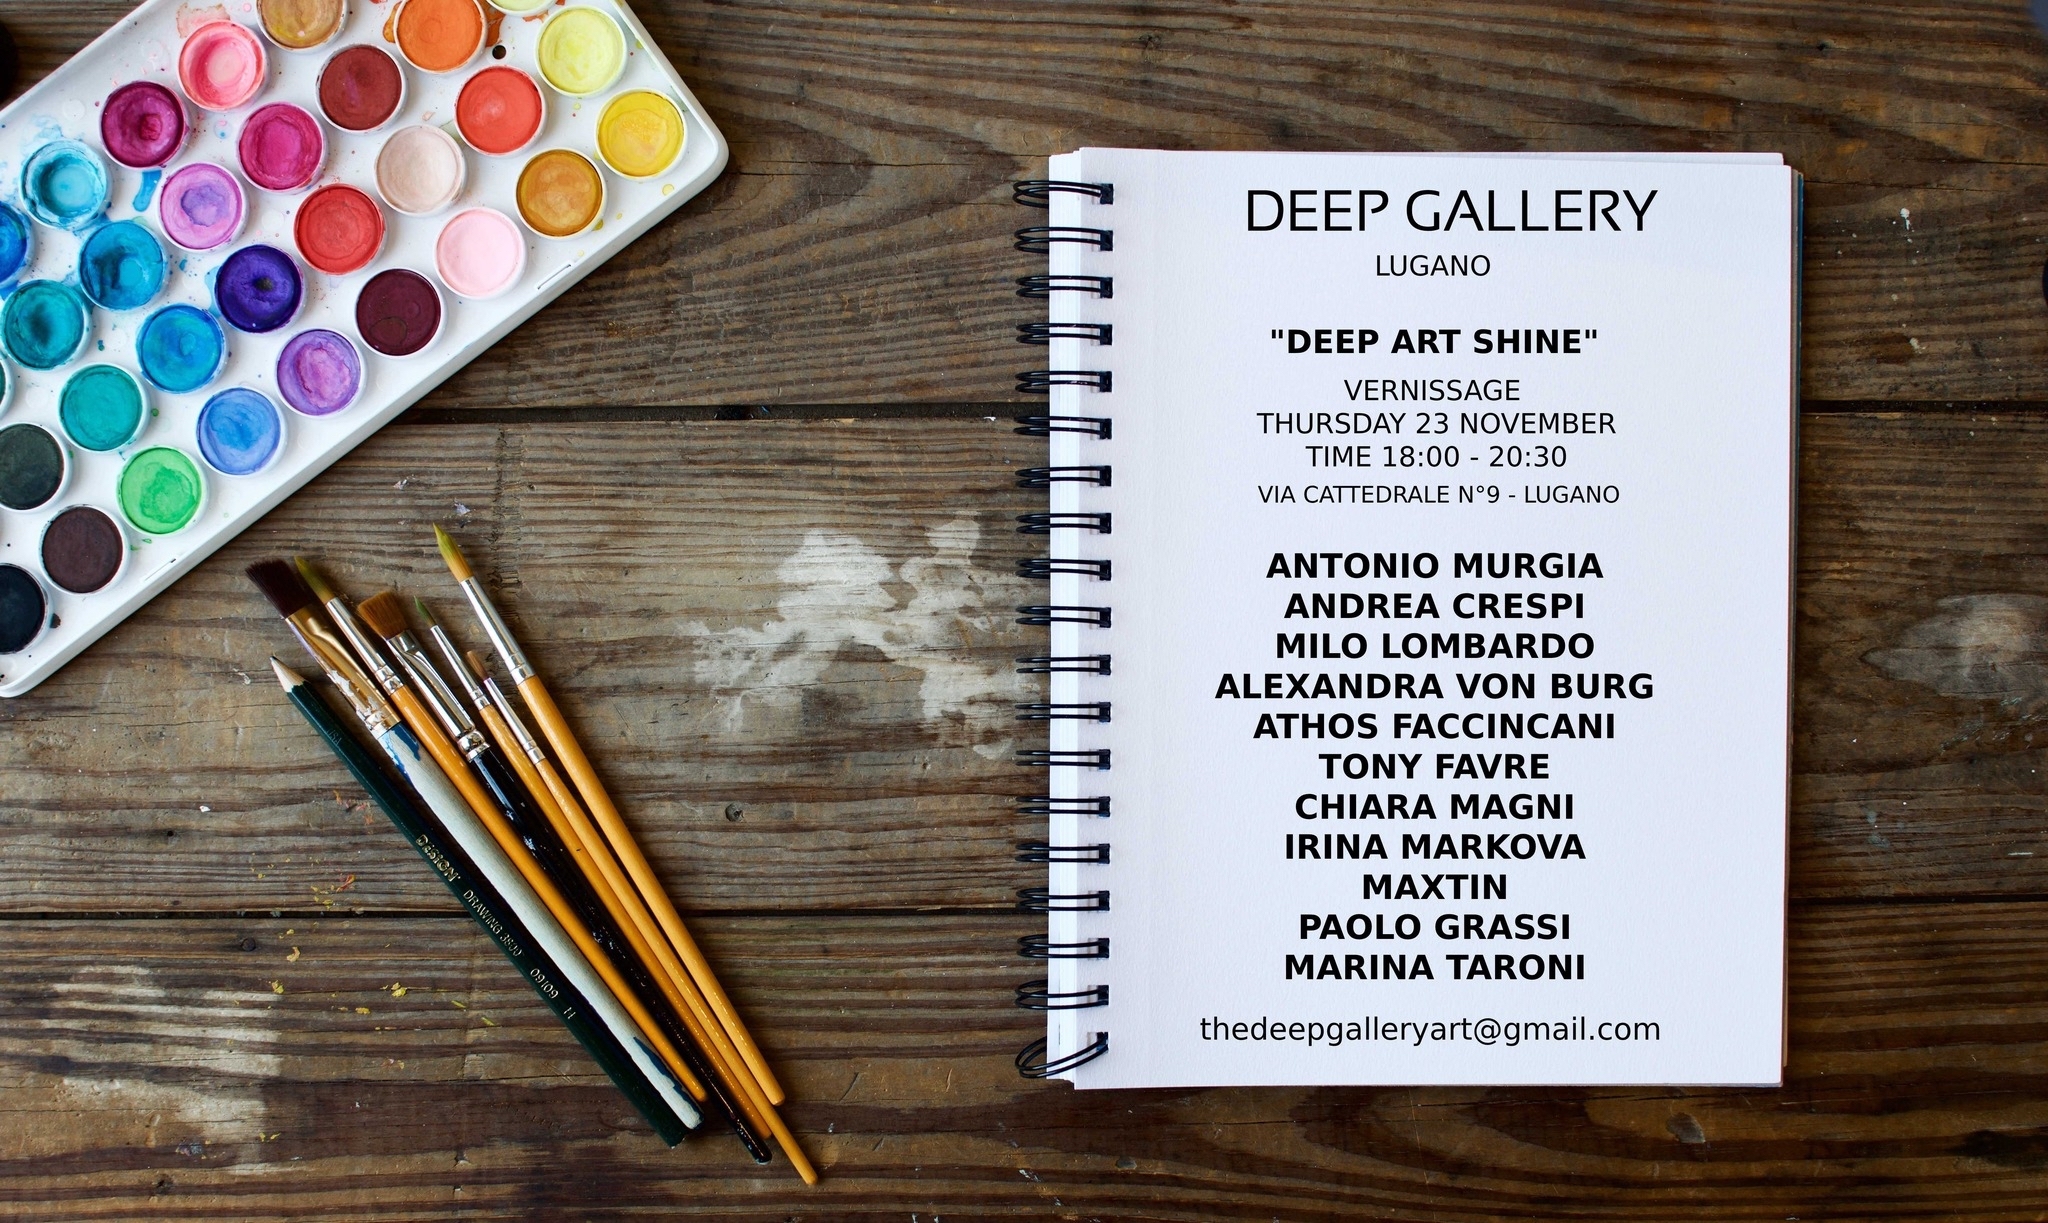 DEEP GALLERY
LUGANO
"DEEP ART SHINE"
VERNISSAGE
THURSDAY 23 NOVEMBER
TIME 18:00 - 20:30
VIA CATTEDRALE N°9 - LUGANO
ANTONIO MURGIA
ANDREA CRESPI
MILO LOMBARDO
ALEXANDRA VON BURG
ATHOS FACCINCANI
TONY FAVRE
CHIARA MAGNI
IRINA MARKOVA
MAXTIN
PAOLO GRASSI
MARINA TARONI
thedeepgalleryart@gmail.com
DESIGN. DRAWING 3800